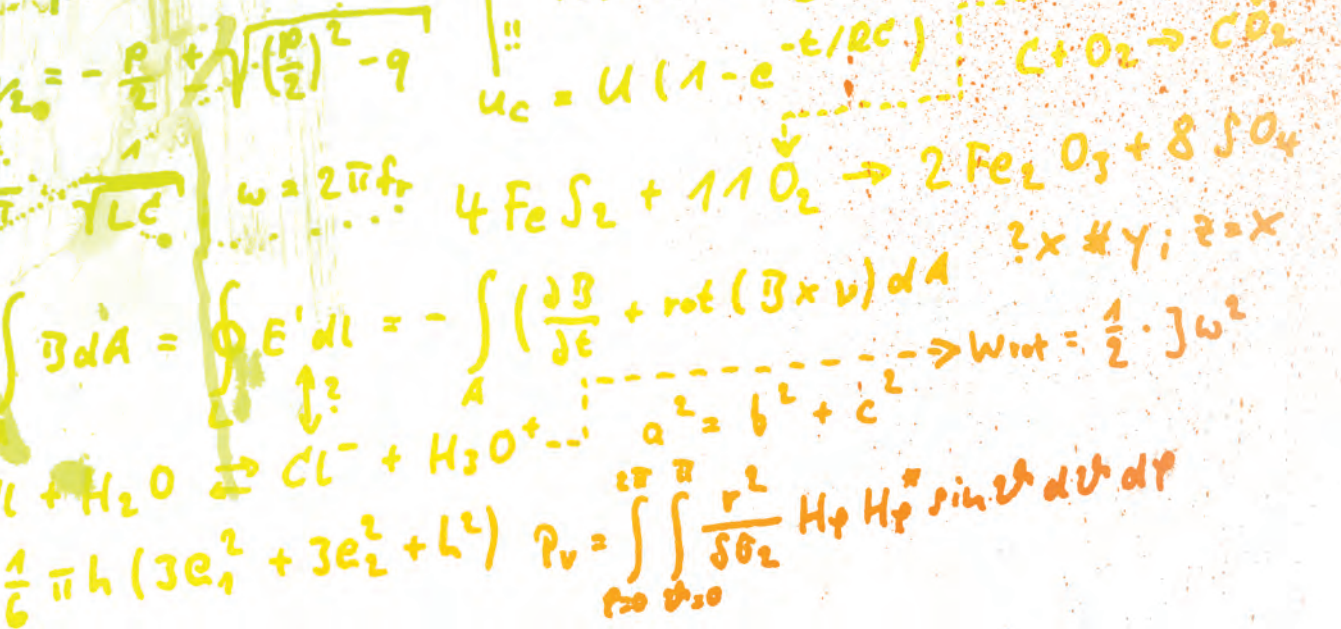 = - p/2 ± √(-(p/2)² - q
!!
u_c = U (1 - e^(-t/RC))
C + O₂ → CO₂
1/√LC
ω = 2πfᵣ
4 Fe S₂ + 11 O₂ → 2 Fe₂ O₃ + 8 SO₄
?x # y; z = x
∫ B dA = ∮_L E' dl = - ∫_A (∂B/∂t + rot (B × v) dA
W rot = 1/2 · J ω²
?
a² = b² + c²
l + H₂O ⇄ Cl⁻ + H₃O⁺
1/6 π h (3e₁² + 3e₂² + h²)
P_v = ∫_(φ=0)^(2π) ∫_(ϑ=0)^(π) r²/(δσ₂) H_φ H_φ* sin ϑ dϑ dφ